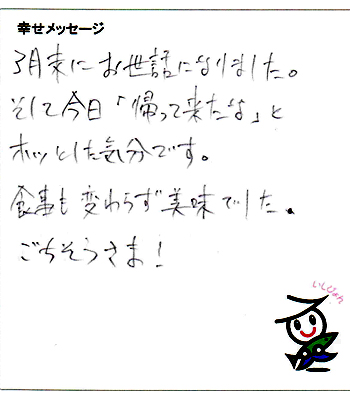 幸せメッセージ
3月末にお世話になりました。
そして今日「帰って来たな」と
ホッとした気分です。
食事も変わらず美味でした。
ごちそうさま!
いしじゃん